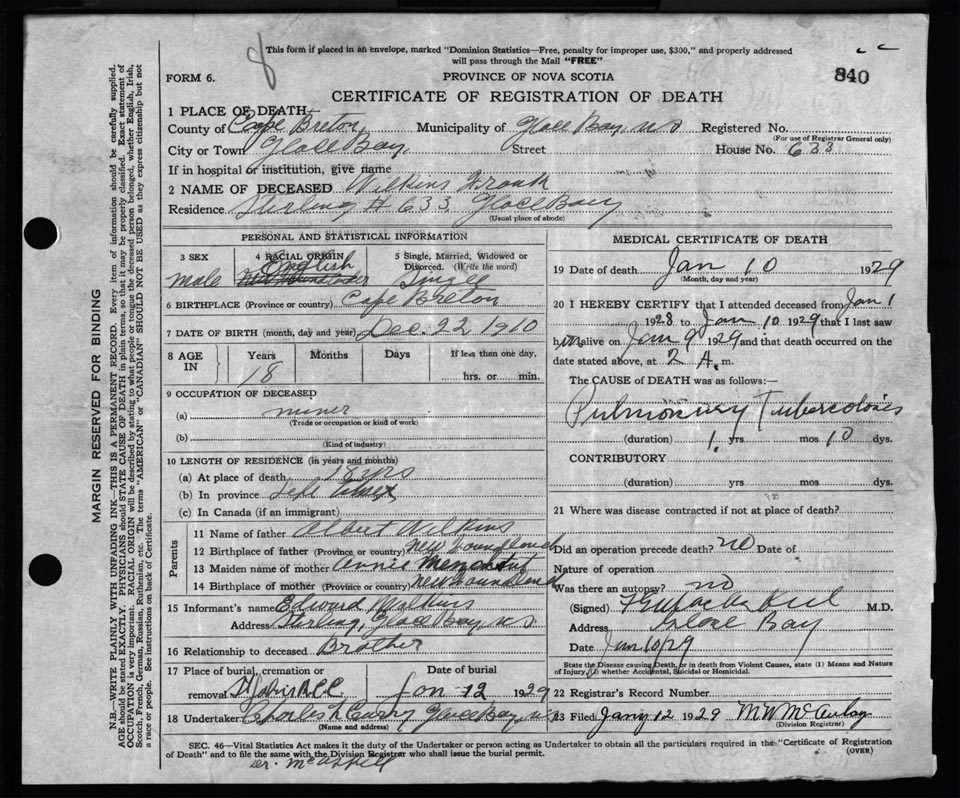 This form if placed in an envelope, marked "Dominion Statistics—Free, penalty for improper use, $300," and properly addressed
will pass through the Mail "FREE"
8
840
FORM 6.
PROVINCE OF NOVA SCOTIA
CERTIFICATE OF REGISTRATION OF DEATH
1 PLACE OF DEATH
County of Cape Breton, Municipality of Glace Bay, NS Registered No.
(For use of Registrar General only)
City or Town Glace Bay. Street House No. 633
If in hospital or institution, give name
2 NAME OF DECEASED Wilkins Frank
Residence Sterling # 633 Glace Bay
(Usual place of abode)
PERSONAL AND STATISTICAL INFORMATION
3 SEX
male
4 RACIAL ORIGIN
English
5 Single, Married, Widowed or
Divorced. (Write the word)
Single
6 BIRTHPLACE (Province or country) Cape Breton
7 DATE OF BIRTH (month, day and year) Dec. 22 1910
8 AGE IN Years Months Days If less than one day,
18 hrs. or min.
9 OCCUPATION OF DECEASED
(a) miner
(Trade or occupation or kind of work)
(b)
(Kind of industry)
10 LENGTH OF RESIDENCE (in years and months)
(a) At place of death 18 yrs
(b) In province Life time
(c) In Canada (if an immigrant)
Parents
11 Name of father Albert Wilkins
12 Birthplace of father (Province or country) Newfoundland
13 Maiden name of mother Annie
14 Birthplace of mother (Province or country) Newfoundland
15 Informant's name Edward Wilkins
Address Sterling, Glace Bay, NS
16 Relationship to deceased Brother
17 Place of burial, cremation or Date of burial
removal Jan 12 1929
18 Undertaker Charles Curry Glace Bay, NS
(Name and address)
MEDICAL CERTIFICATE OF DEATH
19 Date of death Jan 10 1929
(Month, day and year)
20 I HEREBY CERTIFY that I attended deceased from Jan 1
1928 to Jan 10 1929 that I last saw
him alive on Jan 9 1929 and that death occurred on the
date stated above, at 2 A. m.
The CAUSE of DEATH was as follows:—
Pulmonary Tuberculosis
(duration) 1 yrs mos 10 dys.
CONTRIBUTORY
(duration) yrs mos dys.
21 Where was disease contracted if not at place of death?
Did an operation precede death? no Date of
Nature of operation
Was there an autopsy? no
(Signed) M.D.
Address Glace Bay
Date Jan 10/29
State the Disease causing Death, or in death from Violent Causes, state (1) Means and Nature
of Injury, (2) whether Accidental, Suicidal or Homicidal.
22 Registrar's Record Number
23 Filed Jany 12 1929 M W McAulay
(Division Registrar)
SEC. 46—Vital Statistics Act makes it the duty of the Undertaker or person acting as Undertaker to obtain all the particulars required in the "Certificate of Registration
of Death" and to file the same with the Division Registrar who shall issue the burial permit. (OVER)
Dr. McAskill
MARGIN RESERVED FOR BINDING
N.B.—WRITE PLAINLY WITH UNFADING INK—THIS IS A PERMANENT RECORD. Every item of information should be carefully supplied.
AGE should be stated EXACTLY. PHYSICIANS should STATE CAUSE OF DEATH in plain terms, so that it may be properly classified. Exact statement of
OCCUPATION is very important. RACIAL ORIGIN will be described by stating to what people or tongue the deceased person belonged, whether English, Irish,
Scotch, French, German, Russian, Ruthenian, etc. The terms "AMERICAN" or "CANADIAN" SHOULD NOT BE USED as they express citizenship but not
a race or people. See instructions on back of Certificate.